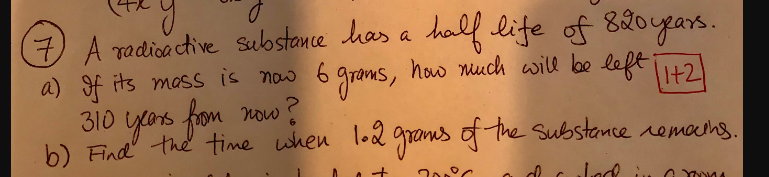 (4x y
⑦ A radioactive substance has a half life of 820 years.
a) If its mass is now 6 grams, how much will be left 1+2
310 years from now?
b) Find the time when 1.2 grams of the substance remains.